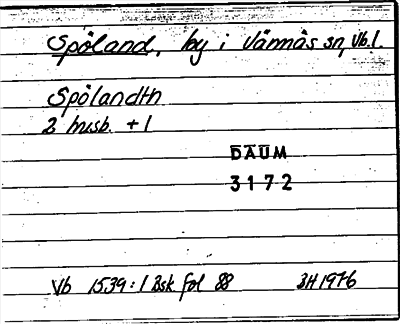 Spöland, by i Vännäs sn, Vb. l.
Spölandth
2 husb. + 1
DAUM
3172
Vb 1539: 1 Bsk fol 88 BH 1976